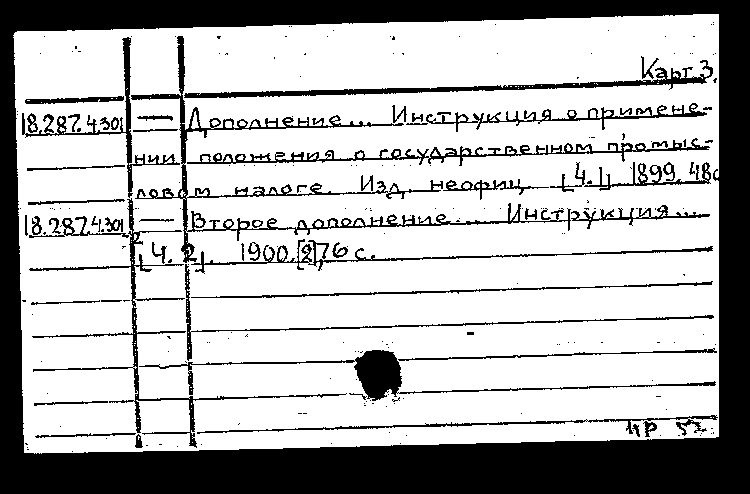 Карт. 3.
18.287.4.301 — Дополнение... Инструкция о примене-
нии положения о государственном промыс-
ловом налоге. Изд. неофиц. [Ч. 1] 1899. 48с
18.287.4.301 — Второе дополнение... Инструкция...
2 [Ч. 2]. 1900. [2], 76 с.